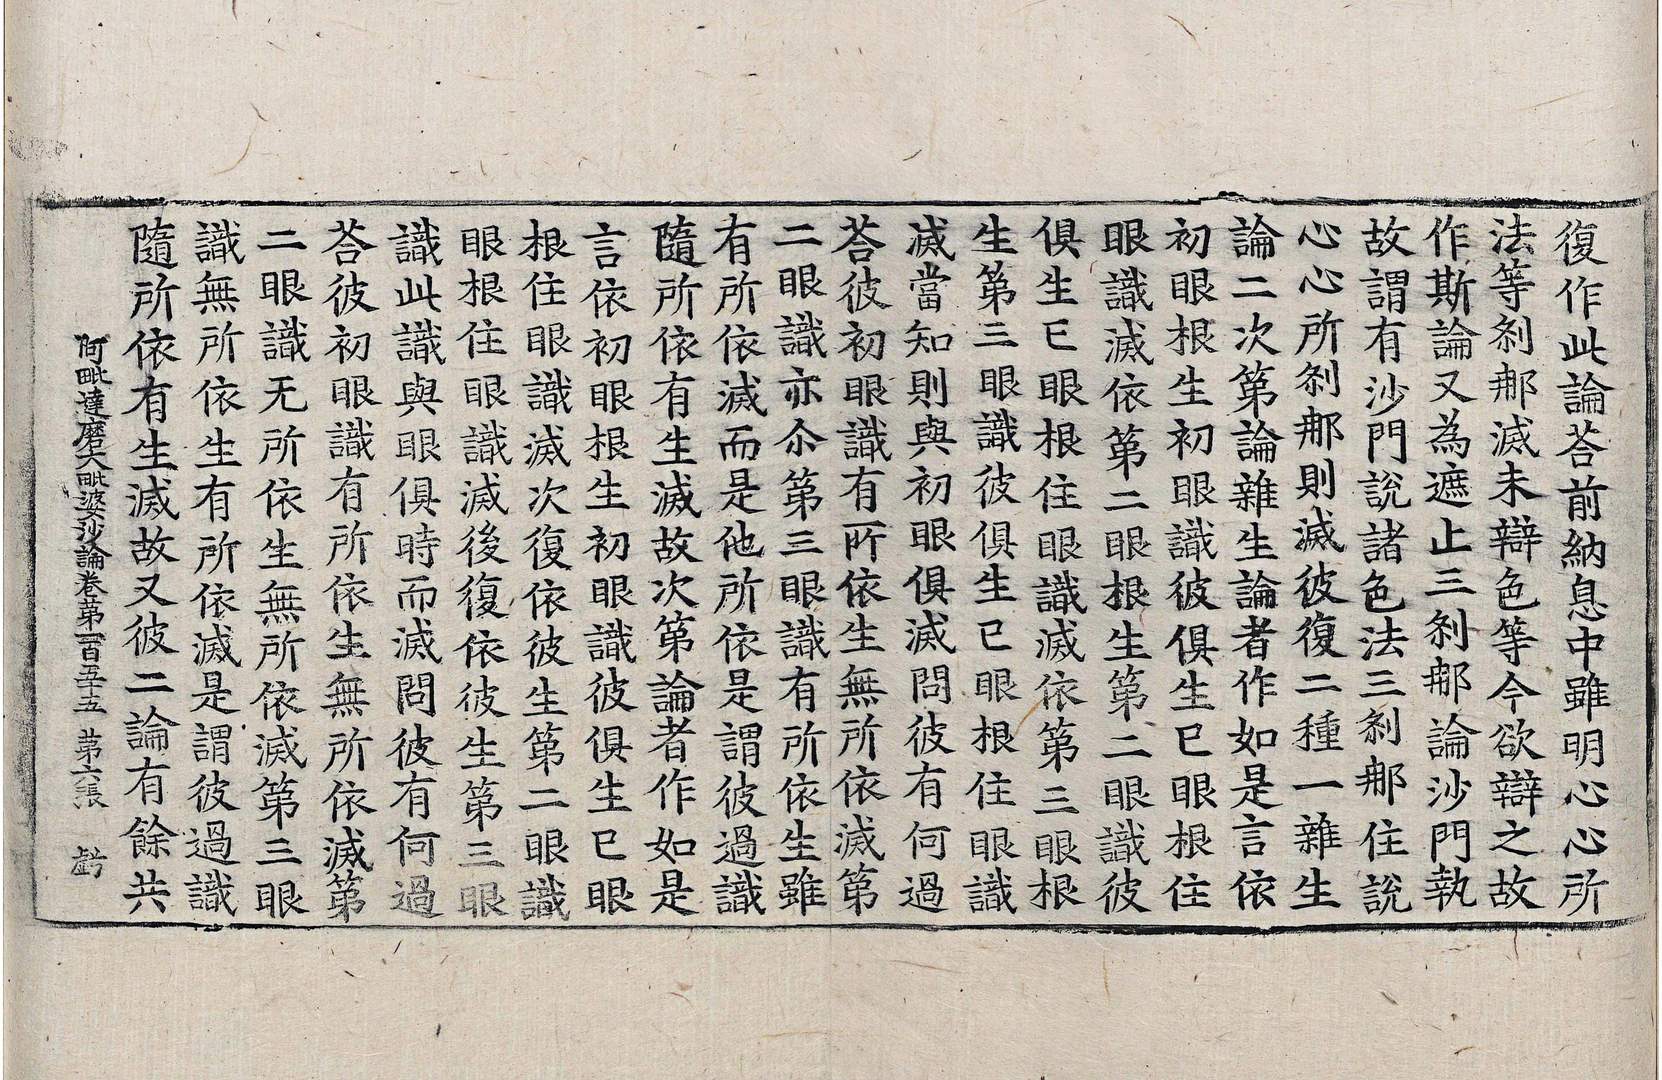 復作此論荅前納息中雖明心心所
法等刹那滅未辯色等今欲辯之故
作斯論又為遮止三刹那論沙門執
故謂有沙門說諸色法三刹那住說
心心所刹那則滅彼復二種一雜生
論二次第論雜生論者作如是言依
初眼根生初眼識彼俱生已眼根住
眼識滅依第二眼根生第二眼識彼
俱生已眼根住眼識滅依第三眼根
生第三眼識彼俱生已眼根住眼識
滅當知則與初眼俱滅問彼有何過
荅彼初眼識有所依生無所依滅第
二眼識亦尒第三眼識有所依生雖
有所依滅而是他所依是謂彼過識
隨所依有生滅故次第論者作如是
言依初眼根生初眼識彼俱生已眼
根住眼識滅次復依彼生第二眼識
眼根住眼識滅後復依彼生第三眼
識此識與眼俱時而滅問彼有何過
荅彼初眼識有所依生無所依滅第
二眼識无所依生無所依滅第三眼
識無所依生有所依滅是謂彼過識
隨所依有生滅故又彼二論有餘共
阿毗達磨大毗婆沙論卷第一百五十五 第六張 虧